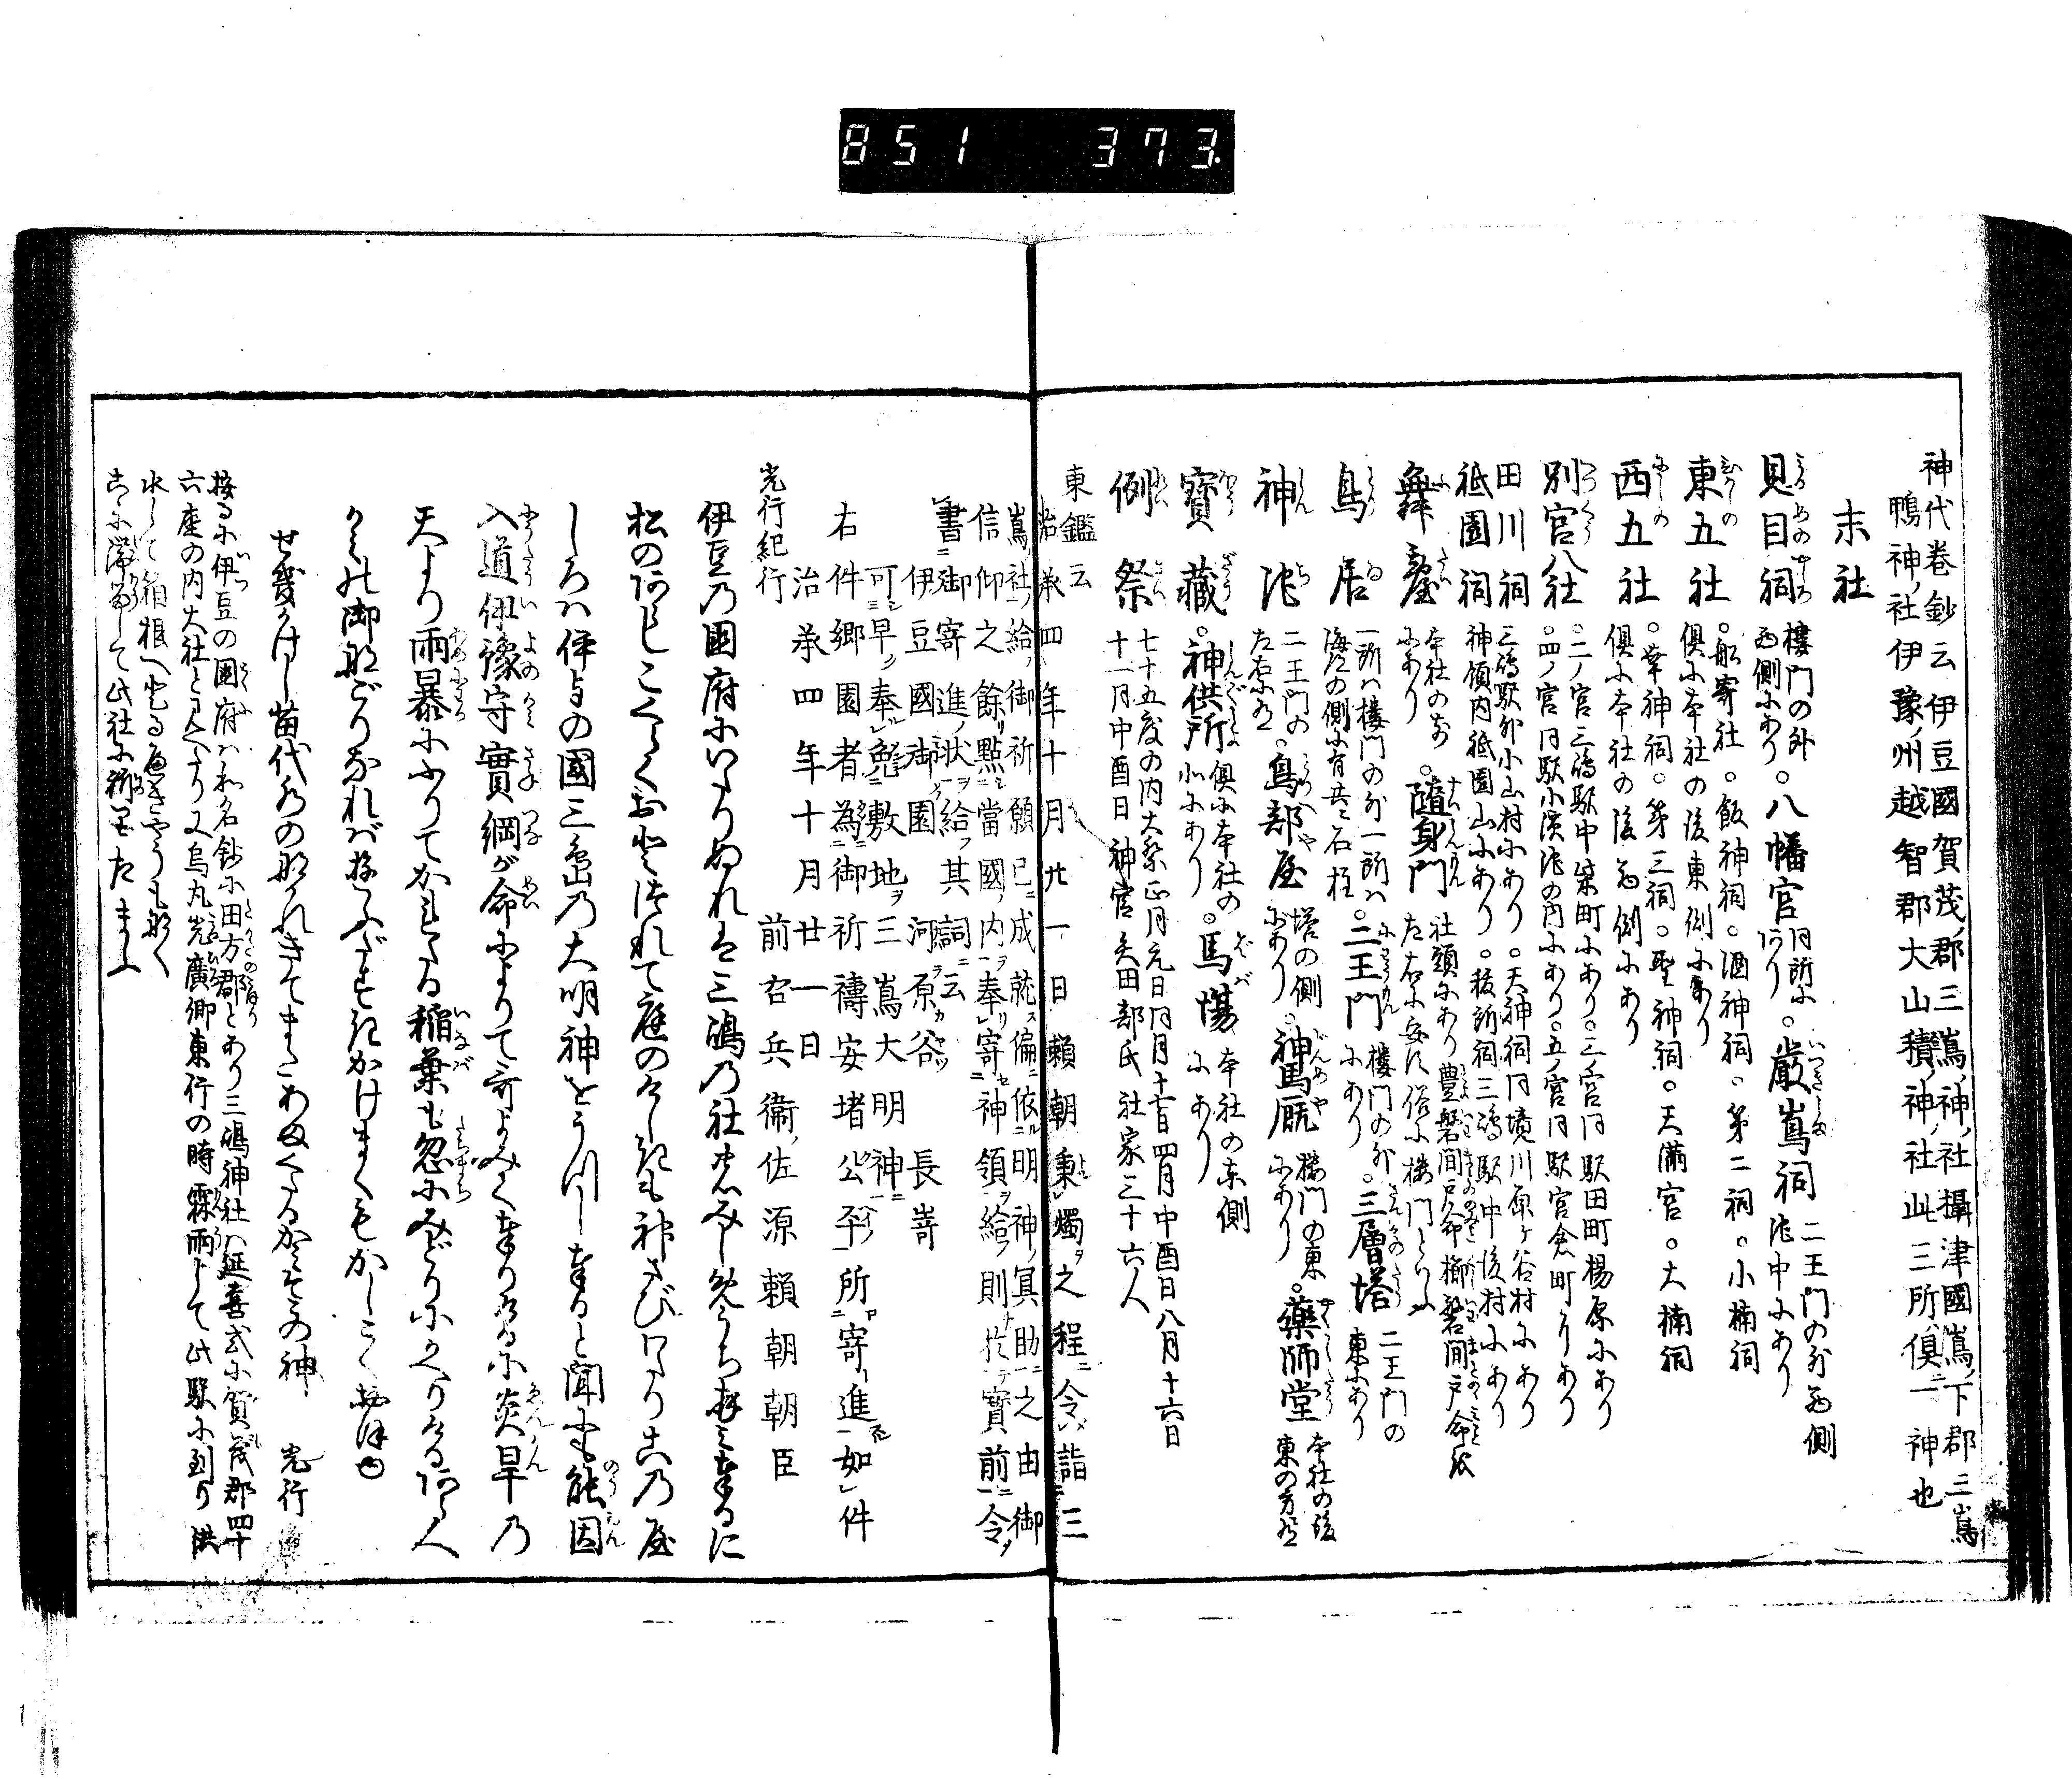 851 373
神代卷鈔云伊豆國賀茂ノ郡三嶌ノ神ノ社攝津國嶌ノ下郡三嶌
鴨神ノ社伊豫ノ州越智郡大山積ノ神ノ社此三所ハ倶ニ一神也
末社
見目祠 樓門の外西側にあり。八幡宮 同所にあり。嚴嶌祠 二王門の外西側池中にあり
東五社 。船寄社。飯神祠。酒神祠。第二祠。小楠祠 倶に本社の後東側にあり
西五社 。第三祠。聖神祠。天滿宮。大楠祠 倶に本社の後西側にあり
別宮八社 。二ノ宮三嶋駅中柴町にあり。三ノ宮同駅田町楊原にあり。四ノ宮同駅小濱池の内にあり。五ノ宮同駅宮倉町にあり
田川祠 三嶋駅外小山村にあり。天神祠同境川原ヶ谷村にあり
祗園祠 神領内祗園山にあり。祓所祠三嶋駅中後村にあり
舞臺 本社の前にあり。隨身門 社頭にあり豊磐間戸命櫛磐間戸命を左右に安ず俗に樓門といふ
鳥居 一所ハ樓門の外一所ハ海道の側に有共に石柱。二王門 樓門の外にあり。三層塔 二王門の東にあり
神池 二王門の左右にあり。鳥部屋 塔の側にあり。神馬厩 樓門の東にあり。藥師堂 本社の後東の方にあり
寶藏。神供所 倶に本社の北にあり。馬場 本社の東側にあり
例祭 七十五度の内大祭正月元日同月十七日四月中酉日八月十六日
十一月中酉日 神官矢田部氏社家三十六人
東鑑云
治承四年十月廿一日賴朝秉燭ヲ之程ニ令ム詣ニ三
嶌ノ社ニ給ノ御祈願已ニ成就ス偏ニ依ル明神ノ冥助ニ之由御
信仰之餘リ點ニ當國ノ内ヲ奉リ寄ニ神領ヲ給フ則於テ寶前ニ令ヲ
書ニ御寄進ノ狀ヲ給フ其詞ニ云
伊豆國御園 河原ヶ谷 長嵜
可シ早ク奉ル免ニ敷地ヲ三嶌大明神ニ
右件郷園者為ニ御祈禱安堵公平ノ所寄進如件
治承四年十月廿一日
前右兵衞ノ佐源賴朝朝臣
光行紀行
伊豆の國府にいたりぬれは三嶋の社のみしめうちおかミ奉るに
松のあらしこくらくおとつれて庭のけしきも神さひわたり此の社
しろハ伊与の國三島の大明神をうつし奉ると聞にも能因
入道伊豫守實綱が命によりて哥よみて奉りけるに炎旱の
天より雨暴にふりてかれたる稲葉も忽にみどりにかへりける阿ら人
かミの御那ごりなれバゆふだすきかけまくもかしこく おほゆ
せきかけし苗代水の那がれきてまたあまくたるかミそこの神 光行
按るに伊豆の國府ハ和名鈔に田方郡とあり三嶋神社ハ延喜式に賀茂郡四十
六座の内大社と見えたり又烏丸光廣卿東行の時霖雨して此駅に到り洪
水して箱根へ出る事やうも那く
こゝに滞留して此社に祈りたまふ